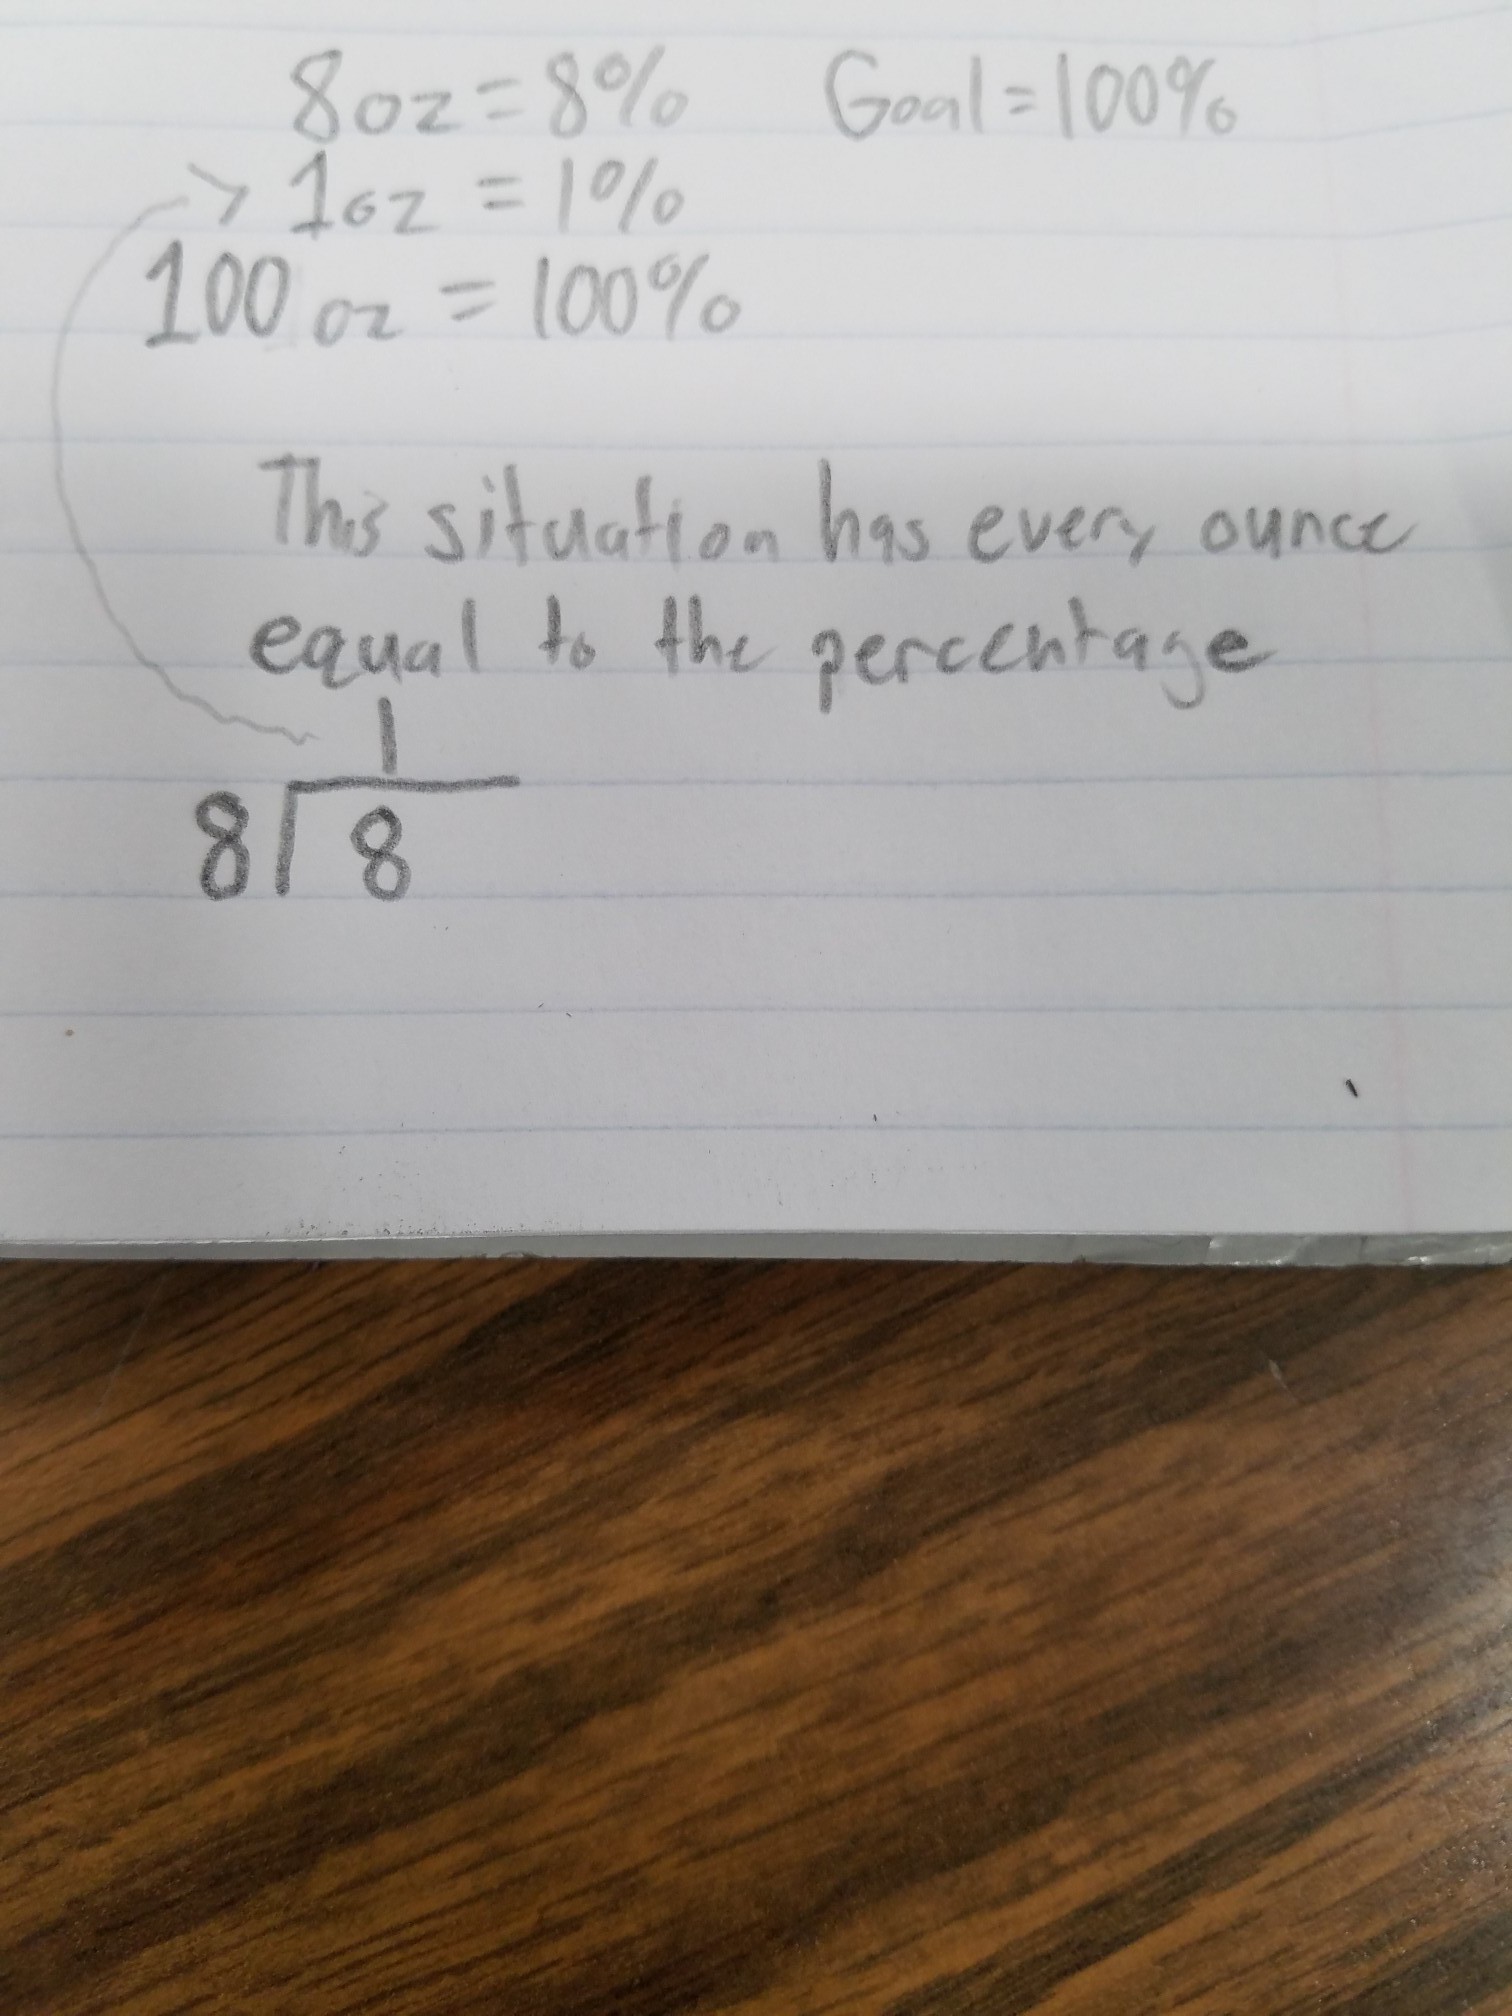 8oz = 8% Goal = 100%
> 1oz = 1%
100 oz = 100%
This situation has every ounce
equal to the percentage
1
8 8